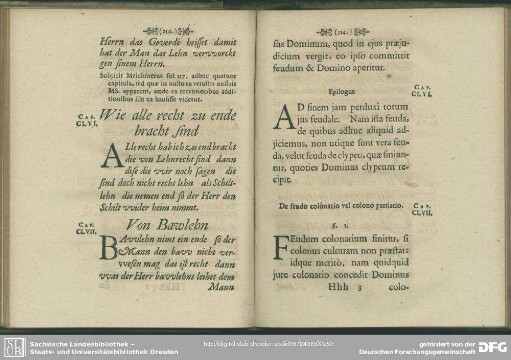 (214.)
Herrn das Geverde heisset damit
hat der Man das Lehn verwerckt
gen sinem Herrn.
Subjicit Melchineras fol. 117. adhuc quatuor
capitula, sed quæ in nullo ex vetustis nullus
MS. apparent, unde ex recentioribus addi-
tionibus ille ea hausisse videtur.
CAP.
CLVI.
Wie alle recht zu ende
bracht sind
ALle recht hab ich zu end bracht
die von Lehnrecht sind dann
dise die wir noch sagen die
sind doch nicht recht lehn als Schilt-
lehn die nemen end so der Herr den
Schilt wider heim nimmt.
CAP.
CLVII.
Von Bawlehn
BAwlehn nimt ein ende so der
Mann den baw nicht ver-
wesen mag das ist recht dann
was der Herr bawlehns leihet dem
Mann
(214.)
sus Dominum, quod in ejus præju-
dicium vergit, eo ipso committit
feudum & Domino aperitur.
Epilogus
CAP.
CLVI.
AD finem jam perduxi totum
jus feudale. Nam ista feuda,
de quibus adhuc aliquid ad-
jiciemus, non utique sunt vera feu-
da, velut feuda de clypeo, quæ finiun-
tur, quoties Dominus clypeum re-
cipit.
De feudo colonatio vel colono partiario.
CAP.
CLVII.
§. 1.
FEudum colonatium finitur, si
colonus culturam non præstat:
idque meritò, nam quidquid
jure colonatio concedit Dominus
Hhh 3 colo-
Sächsische Landesbibliothek –
Staats- und Universitätsbibliothek Dresden
gefördert von der
Deutschen Forschungsgemeinschaft
DFG